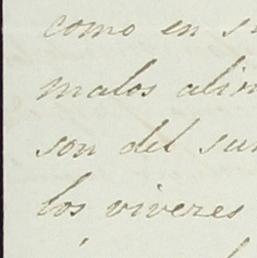 como en su
malos alim
son del sum
los viveres